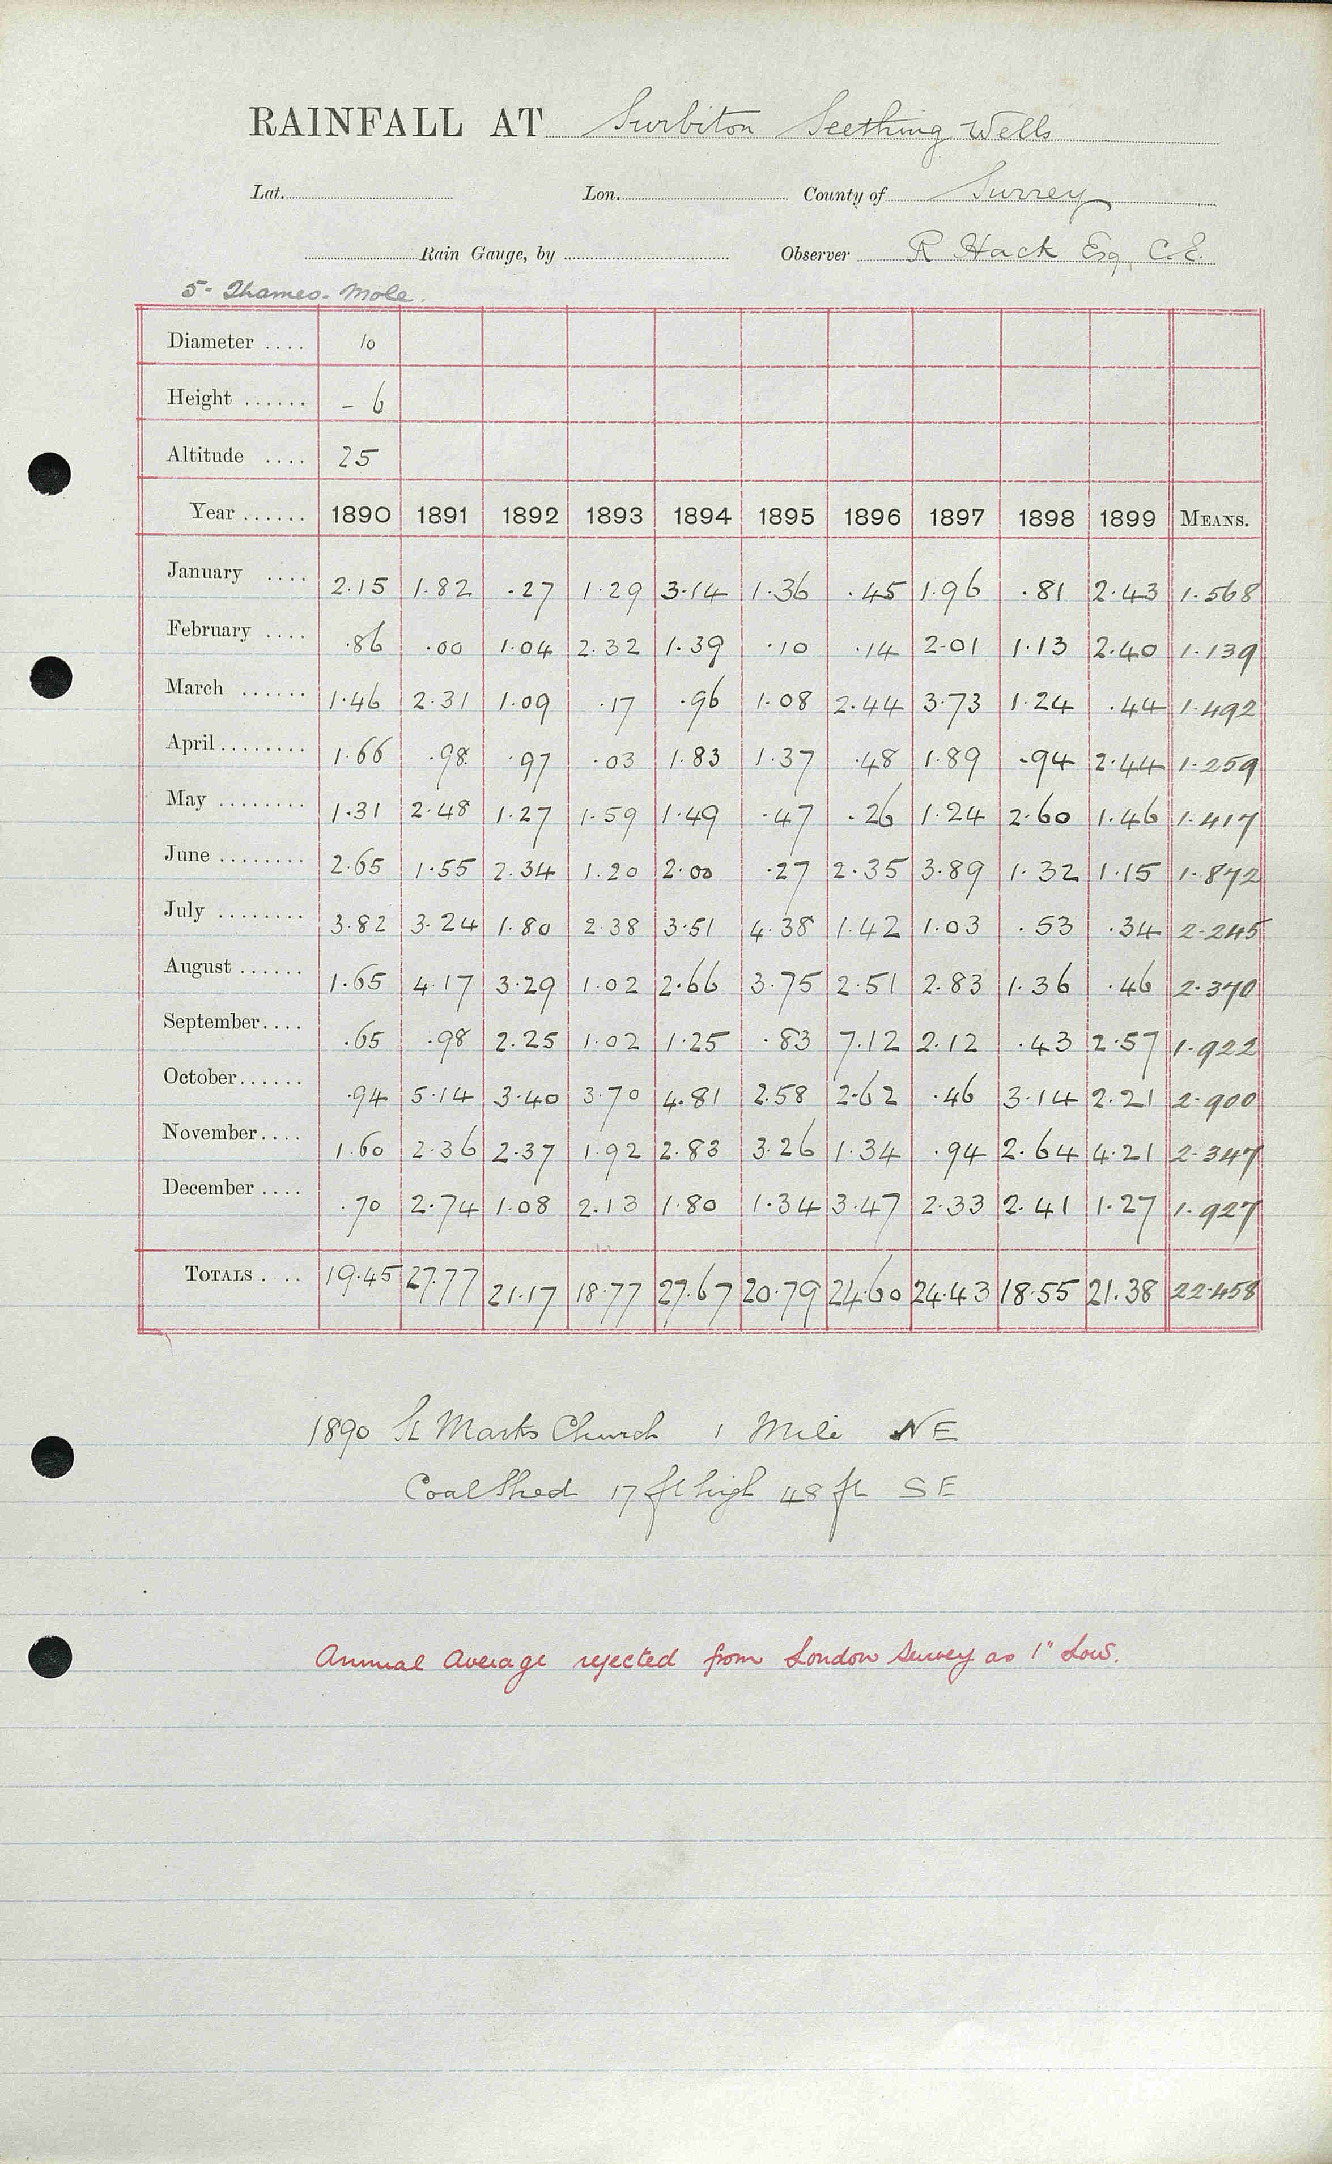 RAINFALL AT Surbiton Seething Wells
Lat. Lon. County of Surrey
Rain Gauge, by Observer R Hack Esq. C.E.
5- Thames- Mole.
Diameter .... 10
Height ...... - 6
Altitude .... 25
Year ...... 1890 1891 1892 1893 1894 1895 1896 1897 1898 1899 MEANS.
January .... 2.15 1.82 .27 1.29 3.14 1.36 .45 1.96 .81 2.43 1.568
February .... .86 .00 1.04 2.32 1.39 .10 .14 2.01 1.13 2.40 1.139
March ...... 1.46 2.31 1.09 .17 .96 1.08 2.44 3.73 1.24 .44 1.492
April ........ 1.66 .98 .97 .03 1.83 1.37 .48 1.89 .94 2.44 1.259
May ........ 1.31 2.48 1.27 1.59 1.49 .47 .26 1.24 2.60 1.46 1.417
June ........ 2.65 1.55 2.34 1.20 2.00 .27 2.35 3.89 1.32 1.15 1.872
July ........ 3.82 3.24 1.80 2.38 3.51 4.38 1.42 1.03 .53 .34 2.245
August ...... 1.65 4.17 3.29 1.02 2.66 3.75 2.51 2.83 1.36 .46 2.370
September .... .65 .98 2.25 1.02 1.25 .83 7.12 2.12 .43 2.57 1.922
October ...... .94 5.14 3.40 3.70 4.81 2.58 2.62 .46 3.14 2.21 2.900
November .... 1.60 2.36 2.37 1.92 2.83 3.26 1.34 .94 2.64 4.21 2.347
December .... .70 2.74 1.08 2.13 1.80 1.34 3.47 2.33 2.41 1.27 1.927
TOTALS . .. 19.45 27.77 21.17 18.77 27.67 20.79 24.60 24.43 18.55 21.38 22.458
1890 St Marks Church 1 Mile NE
Coal Shed 17 ft high 48 ft SE
Annual Average rejected from London Survey as 1" Low.